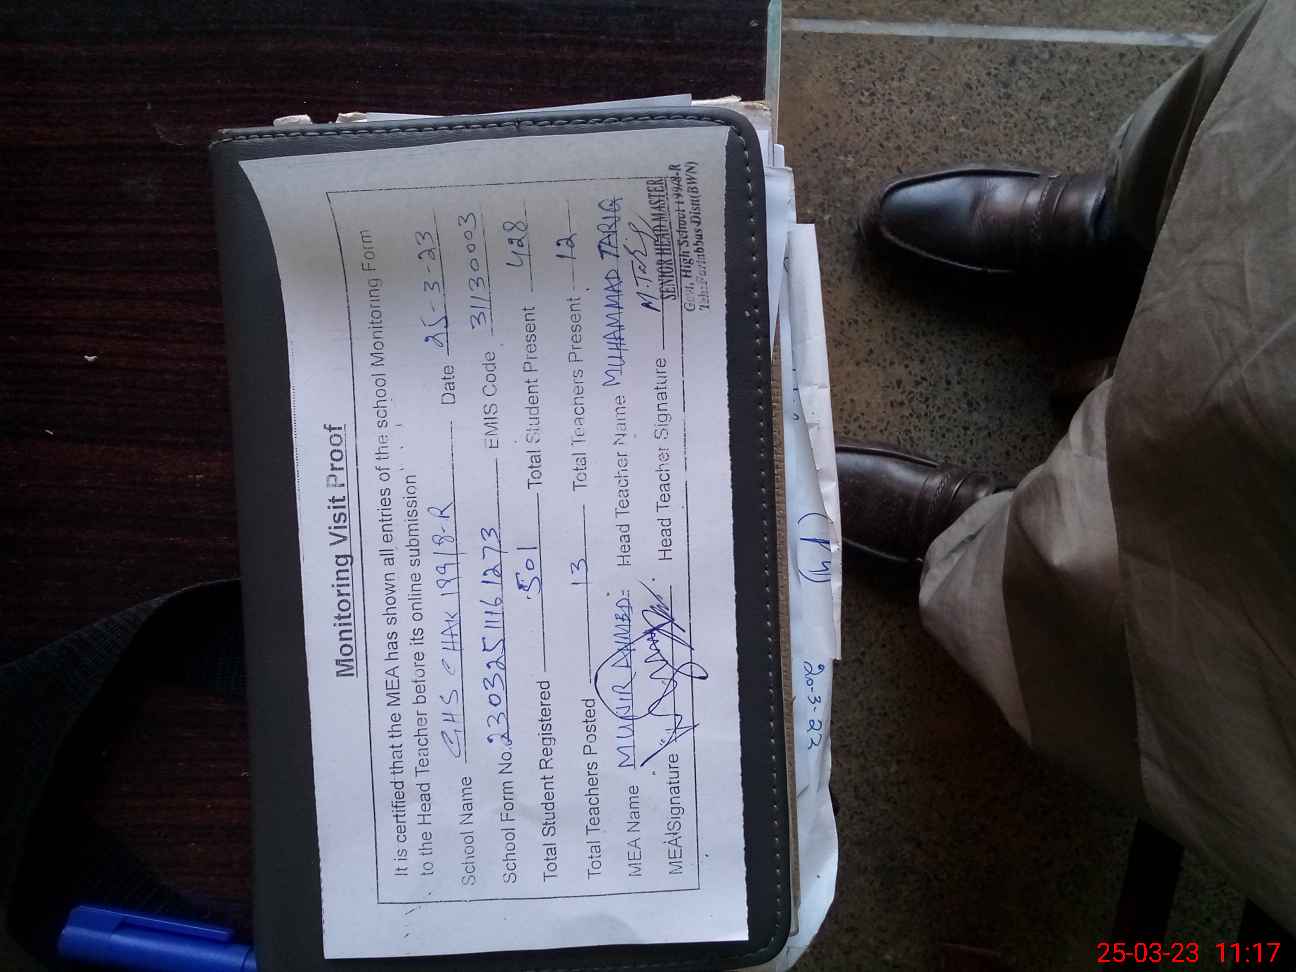 Monitoring Visit Proof
It is certified that the MEA has shown all entries of the school Monitoring Form
to the Head Teacher before its online submission
School Name GHS CHAK 199/8-R Date 25-3-23
School Form No. 2303251161273 EMIS Code 31130003
Total Student Registered 501 Total Student Present 428
Total Teachers Posted 13 Total Teachers Present 12
MEA Name MUNIR AHMED Head Teacher Name MUHAMMAD TARIQ
MEA Signature Head Teacher Signature
SENIOR HEAD MASTER
Govt. High School 199/8-R
Teh: Fortabbas Distt(BWN)
20-3-22
25-03-23 11:17